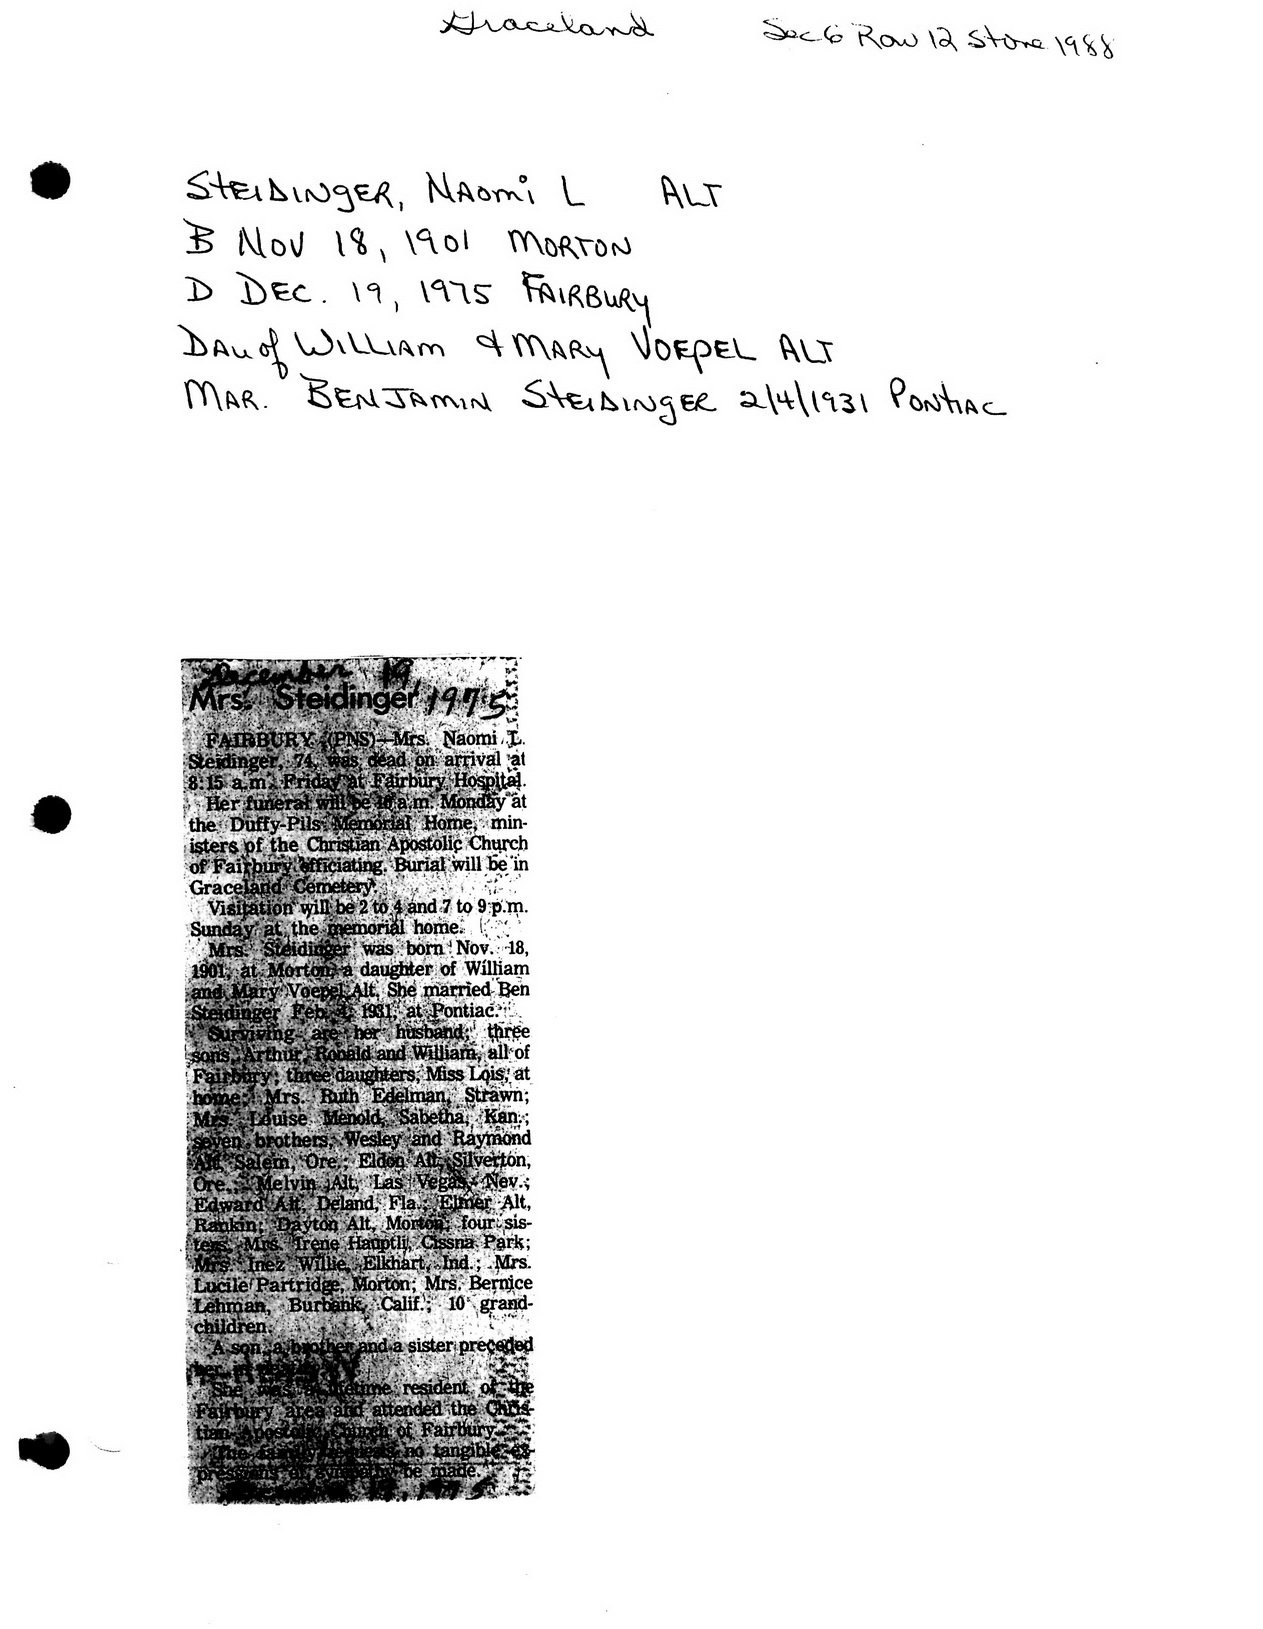 Graceland Sec 6 Row 12 Stone 1988
STEIDINGER, NAOMI L ALT
B NOV 18, 1901 MORTON
D DEC. 19, 1975 FAIRBURY
DAU of WILLIAM & MARY VOEPEL ALT
MAR. BENJAMIN STEIDINGER 2/4/1931 PONTIAC
December 19,
Mrs. Steidinger 1975
FAIRBURY (PNS)—Mrs. Naomi L.
Steidinger, 74, was dead on arrival at
8:15 a.m. Friday at Fairbury Hospital.
Her funeral will be 10 a.m. Monday at
the Duffy-Pils Memorial Home, min-
isters of the Christian Apostolic Church
of Fairbury officiating. Burial will be in
Graceland Cemetery.
Visitation will be 2 to 4 and 7 to 9 p.m.
Sunday at the memorial home.
Mrs. Steidinger was born Nov. 18,
1901, at Morton, a daughter of William
and Mary Voepel Alt. She married Ben
Steidinger Feb. 4, 1931, at Pontiac.
Surviving are her husband; three
sons, Arthur, Ronald and William, all of
Fairbury; three daughters, Miss Lois, at
home; Mrs. Ruth Edelman, Strawn;
Mrs. Louise Menold, Sabetha, Kan.;
seven brothers, Wesley and Raymond
Alt, Salem, Ore.; Eldon Alt, Silverton,
Ore.; Melvin Alt, Las Vegas, Nev.;
Edward Alt, Deland, Fla.; Elmer Alt,
Rankin; Dayton Alt, Morton; four sis-
ters, Mrs. Irene Hauptli, Cissna Park;
Mrs. Inez Willie, Elkhart, Ind.; Mrs.
Lucile Partridge, Morton; Mrs. Bernice
Lehman, Burbank, Calif.; 10 grand-
children.
A son, a brother and a sister preceded
her
She was a lifetime resident of the
Fairbury area and attended the Chris-
tian Apostolic Church of Fairbury.
The family requests no tangible ex-
pressions of sympathy be made.
19, 1975